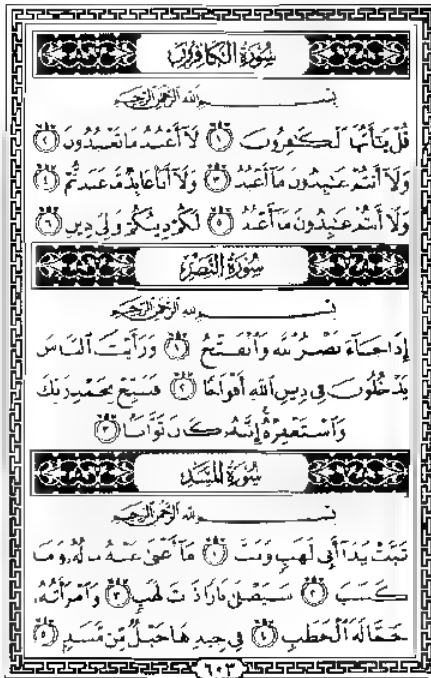 سُورَةُ الكَافِرُونَ
بِسْمِ ٱللَّهِ ٱلرَّحْمَٰنِ ٱلرَّحِيمِ
قُلْ يَٰٓأَيُّهَا ٱلْكَٰفِرُونَ ١ لَآ أَعْبُدُ مَا تَعْبُدُونَ ٢
وَلَآ أَنتُمْ عَٰبِدُونَ مَآ أَعْبُدُ ٣ وَلَآ أَنَا۠ عَابِدٌ مَّا عَبَدتُّمْ ٤
وَلَآ أَنتُمْ عَٰبِدُونَ مَآ أَعْبُدُ ٥ لَكُمْ دِينُكُمْ وَلِىَ دِينِ ٦
سُورَةُ النَّصْرِ
بِسْمِ ٱللَّهِ ٱلرَّحْمَٰنِ ٱلرَّحِيمِ
إِذَا جَآءَ نَصْرُ ٱللَّهِ وَٱلْفَتْحُ ١ وَرَأَيْتَ ٱلنَّاسَ
يَدْخُلُونَ فِى دِينِ ٱللَّهِ أَفْوَاجًا ٢ فَسَبِّحْ بِحَمْدِ رَبِّكَ
وَٱسْتَغْفِرْهُ إِنَّهُۥ كَانَ تَوَّابًۢا ٣
سُورَةُ المَسَدِ
بِسْمِ ٱللَّهِ ٱلرَّحْمَٰنِ ٱلرَّحِيمِ
تَبَّتْ يَدَآ أَبِى لَهَبٍ وَتَبَّ ١ مَآ أَغْنَىٰ عَنْهُ مَالُهُۥ وَمَا
كَسَبَ ٢ سَيَصْلَىٰ نَارًا ذَاتَ لَهَبٍ ٣ وَٱمْرَأَتُهُۥ
حَمَّالَةَ ٱلْحَطَبِ ٤ فِى جِيدِهَا حَبْلٌ مِّن مَّسَدٍۭ ٥
٦٠٣